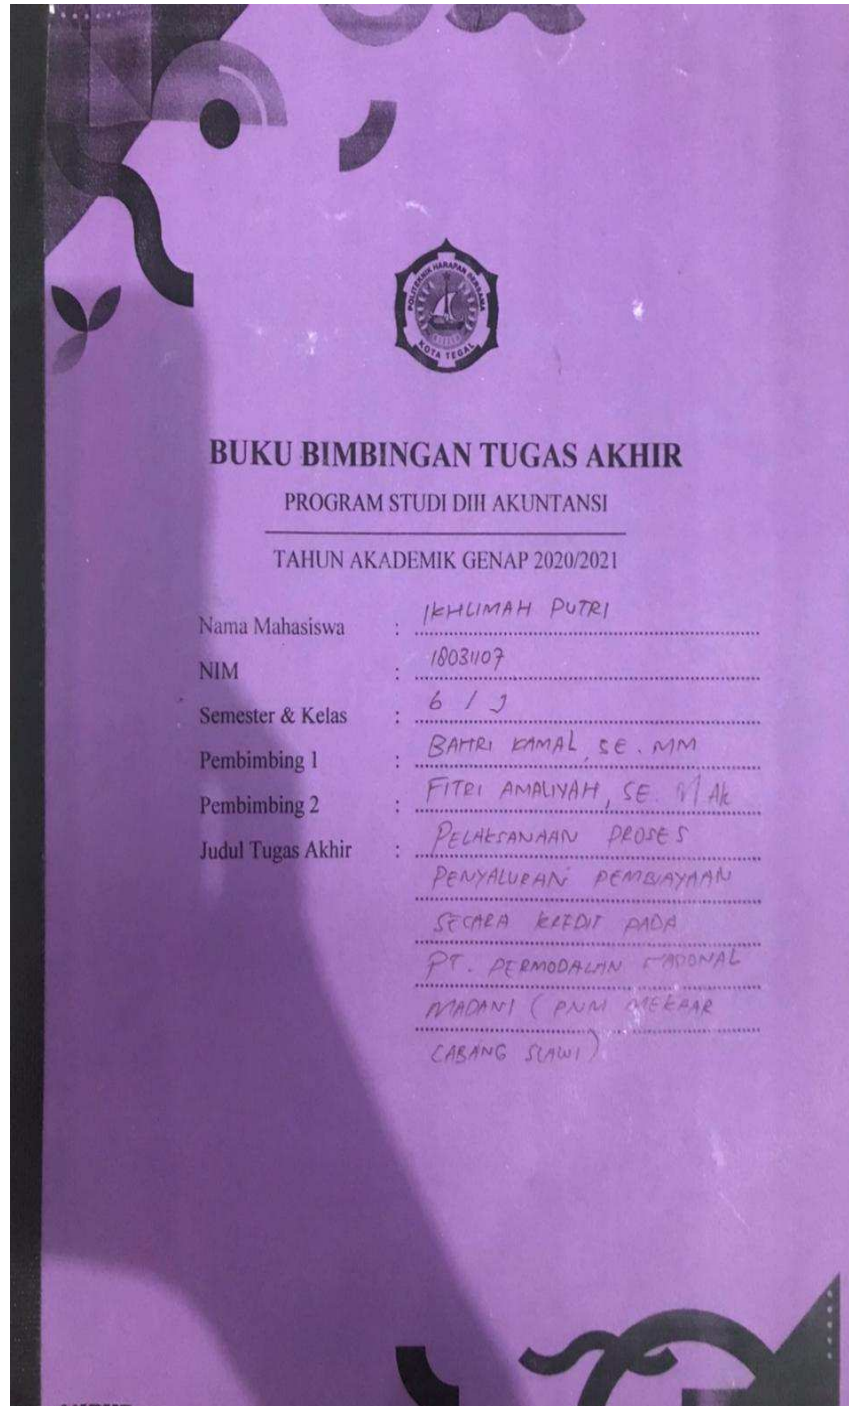 POLITEKNIK HARAPAN BERSAMA
KOTA TEGAL
BUKU BIMBINGAN TUGAS AKHIR
PROGRAM STUDI DIII AKUNTANSI
TAHUN AKADEMIK GENAP 2020/2021
Nama Mahasiswa : IKHLIMAH PUTRI
NIM : 18031107
Semester & Kelas : 6 / J
Pembimbing 1 : BAHRI KAMAL, SE. MM
Pembimbing 2 : FITRI AMALIYAH, SE. M Ak
Judul Tugas Akhir : PELAKSANAAN PROSES
PENYALURAN PEMBIAYAAN
SECARA KREDIT PADA
PT. PERMODALAN NASIONAL
MADANI (PNM MEKAAR
CABANG SLAWI)